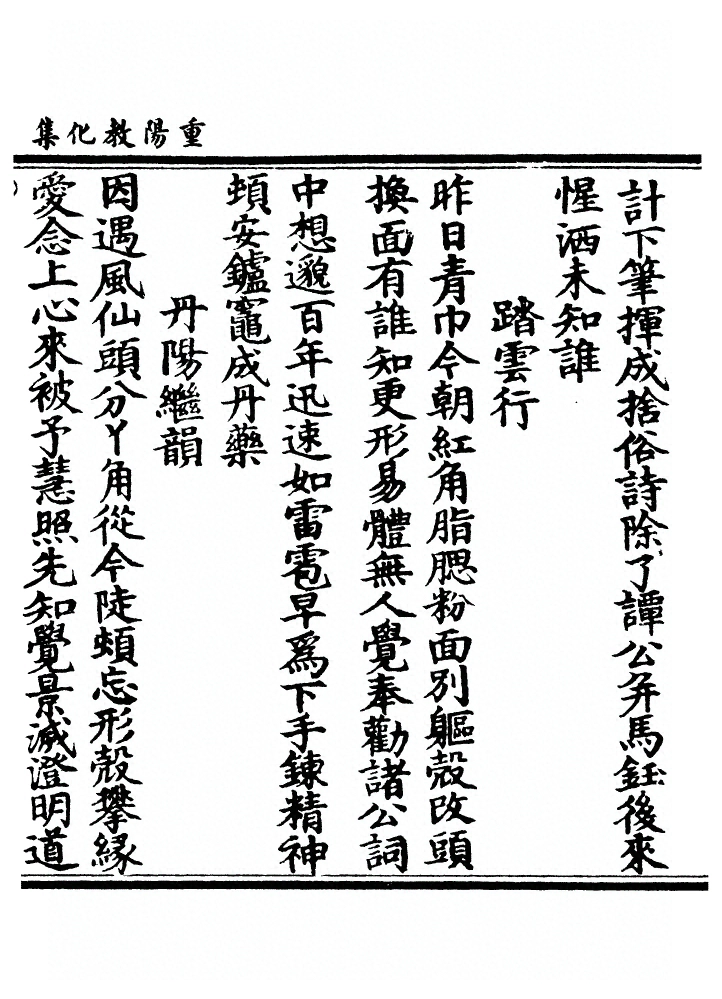 重陽教化集
計下筆揮成捨俗詩除了譚公弃馬鈺後來
惺洒未知誰
踏雲行
昨日青巾今朝紅角脂腮粉面別軀殼改頭
換面有誰知更形易體無人覺奉勸諸公詞
中想邈百年迅速如雷雹早爲下手鍊精神
頓安鑪竈成丹藥
丹陽繼韻
因遇風仙頭分丫角從今陡頓忘形殼攀緣
愛念上心來被予慧照先知覺景滅澄明道